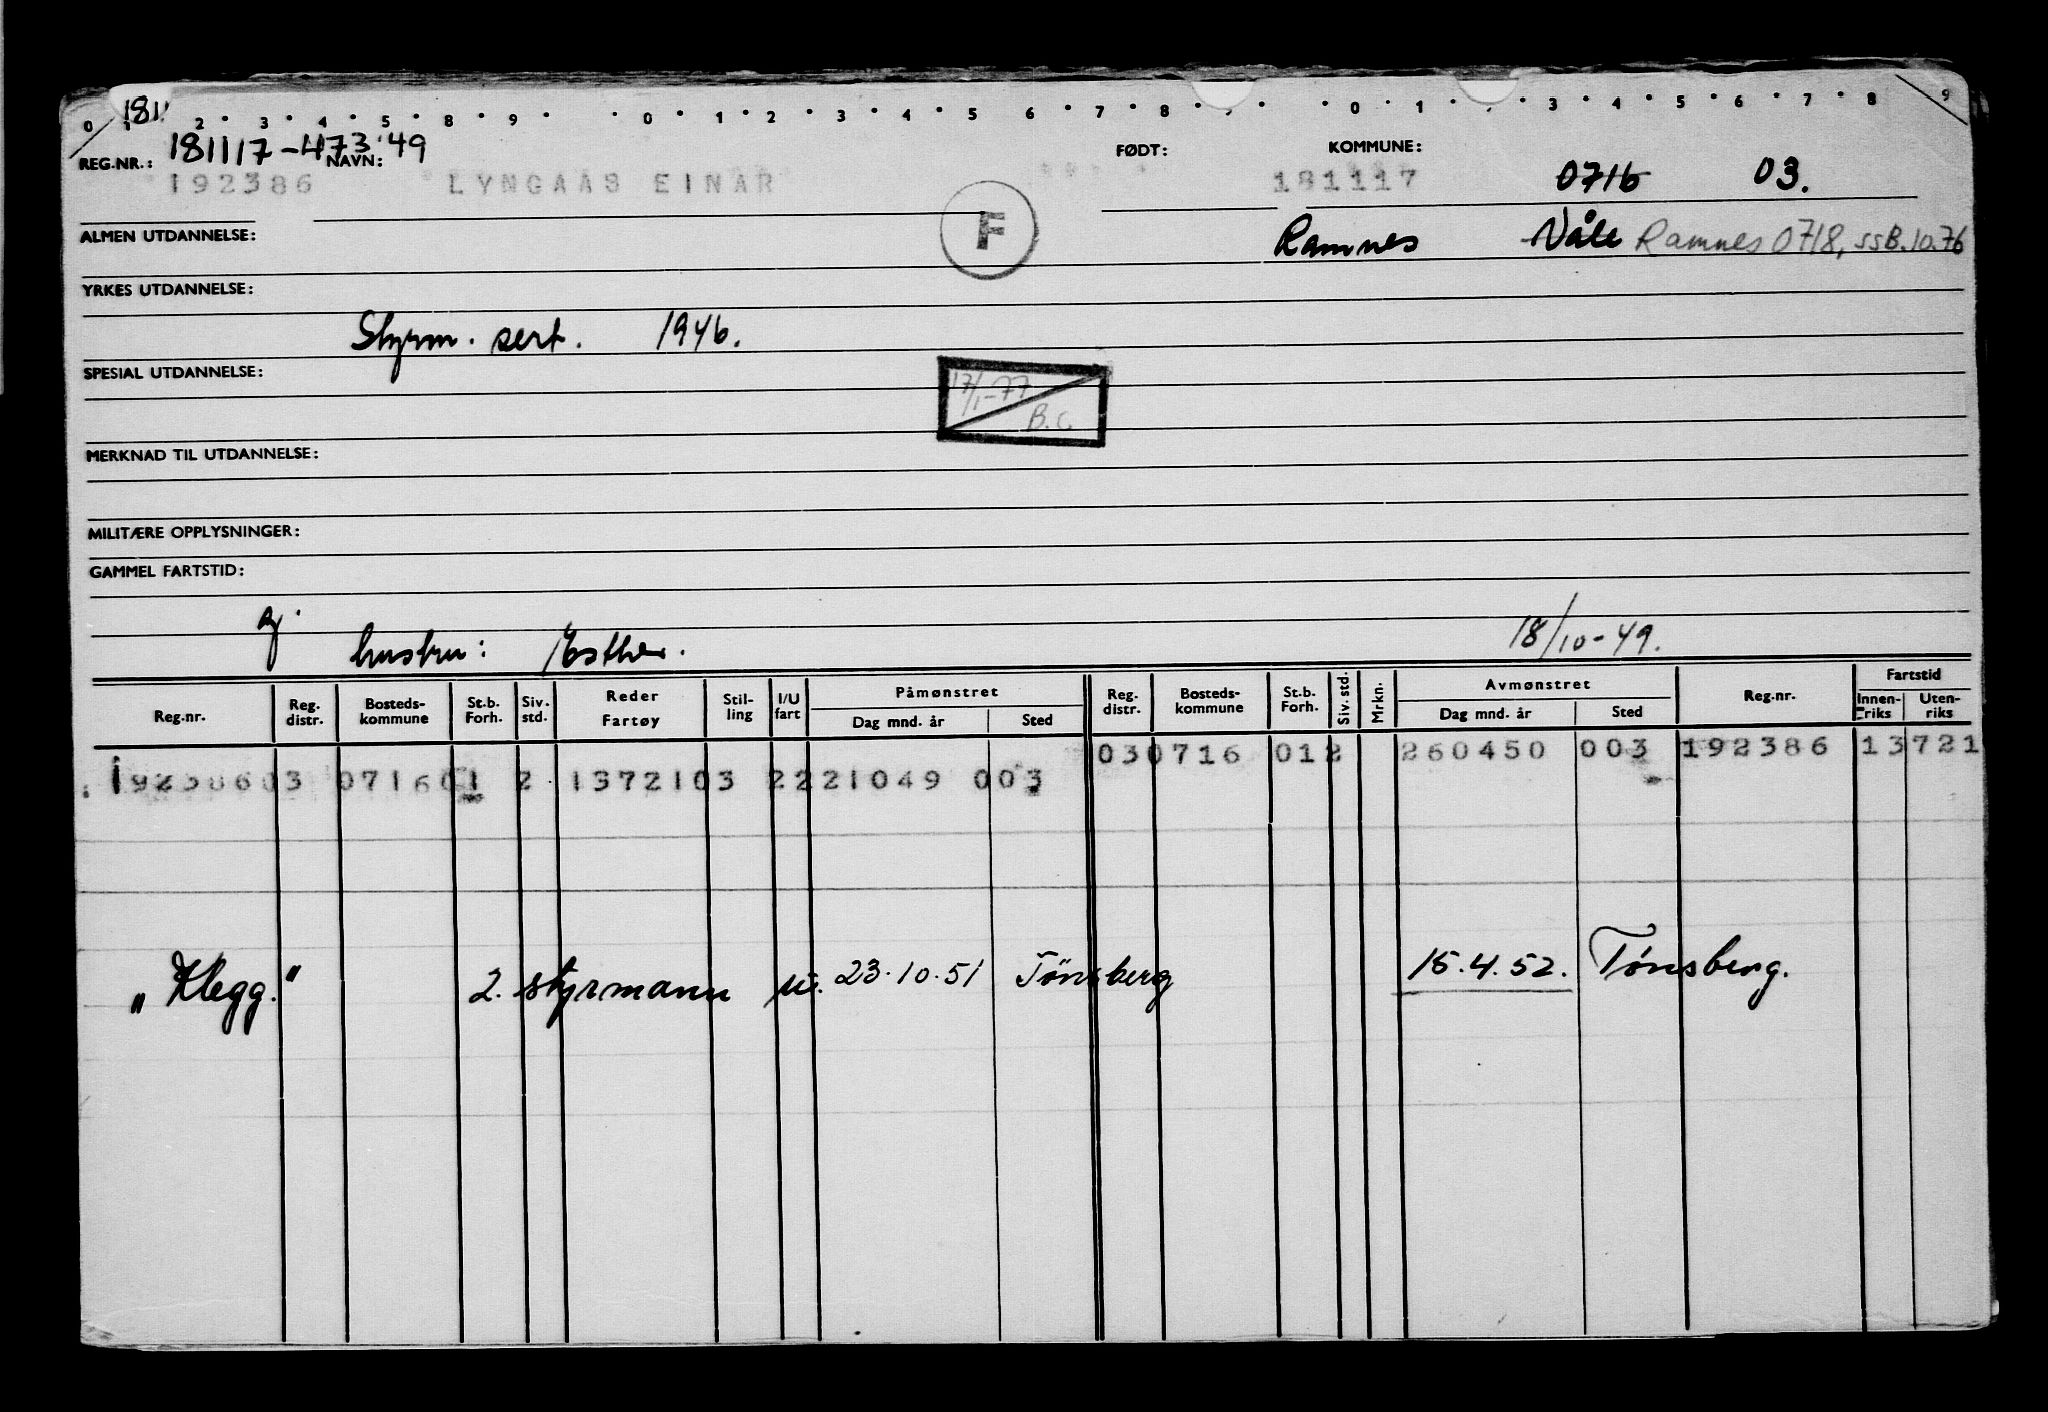 181
0 1 2 3 4 5 8 9 0 1 2 3 4 5 6 7 8 0 1 3 4 5 6 7 8 9
181117-473 49
REG.NR.: NAVN: FØDT: KOMMUNE:
192386 LYNGAAS EINAR 181117 0716 03.
F
ALMEN UTDANNELSE: Ramnes Våle Ramnes 0718, ssB.10.76
YRKES UTDANNELSE:
Styrm. sert. 1946.
SPESIAL UTDANNELSE:
17/1-77
B.C.
MERKNAD TIL UTDANNELSE:
MILITÆRE OPPLYSNINGER:
GAMMEL FARTSTID:
hustru: Esther. 18/10-49.
Reg.nr. Reg. distr. Bosteds-kommune St.b. Forh. Siv. std. Reder Fartøy Stil-ling I/U fart Påmønstret Dag mnd. år Sted Reg. distr. Bosteds-kommune St.b. Forh. Siv. std. Mrkn. Avmønstret Dag mnd. år Sted Reg.nr. Fartstid Innen-riks Uten-riks
030716 012 260450 003 192386 13721
19238603 071601 2 1372103 2221049 003
„Klegg." 2. styrmann u. 23.10.51 Tönsberg 15.4.52. Tønsberg.